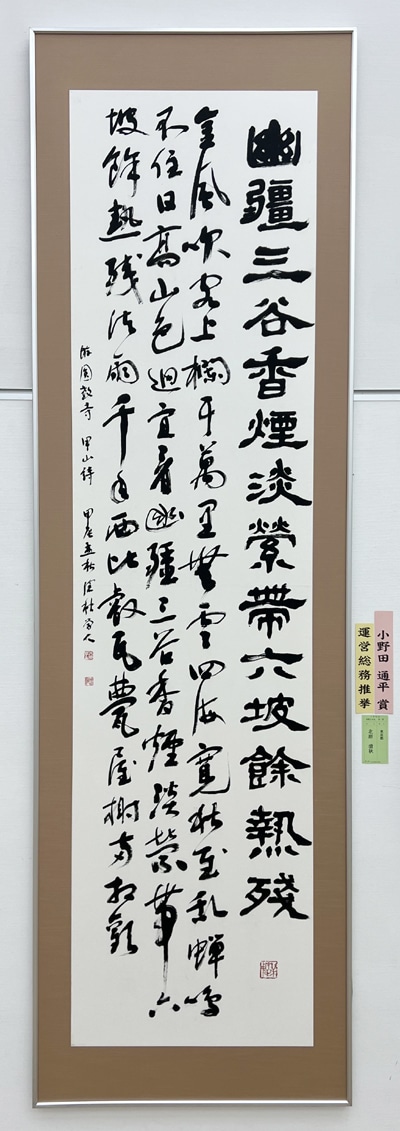 幽疆三谷香煙淡縈帶六坡餘熱殘
金風吹客上欄干萬里無雲四海寬秋至亂蟬鳴
不住日高山色迥宜看幽疆三谷香煙淡縈帶六
坡餘熱殘法雨千年西比叡瓦甍屋樹
游園教寺 甲山詩
小野田 通平 賞
運営総務推挙